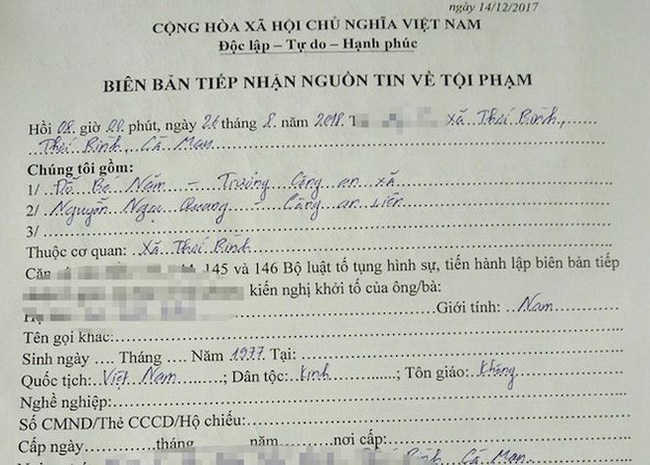 ngày 14/12/2017
CỘNG HÒA XÃ HỘI CHỦ NGHĨA VIỆT NAM
Độc lập – Tự do – Hạnh phúc
BIÊN BẢN TIẾP NHẬN NGUỒN TIN VỀ TỘI PHẠM
Hồi 08 giờ 00 phút, ngày 26 tháng 8 năm 2018 T xã Thái Bình,
Thái Bình, Cà Mau
Chúng tôi gồm:
1/ Đỗ Bé Năm – Trưởng Công an xã
2/ Nguyễn Quang – Công an viên
3/
Thuộc cơ quan: Xã Thái Bình
Căn 145 và 146 Bộ luật tố tụng hình sự, tiến hành lập biên bản tiếp
kiến nghị khởi tố của ông/bà:
Giới tính: Nam
Tên gọi khác:
Sinh ngày .... Tháng .... Năm 1977 Tại:
Quốc tịch: Việt Nam; Dân tộc: Kinh; Tôn giáo: Không
Nghề nghiệp:
Số CMND/Thẻ CCCD/Hộ chiếu:
Cấp ngày tháng năm nơi cấp:
Bình, Cà Mau